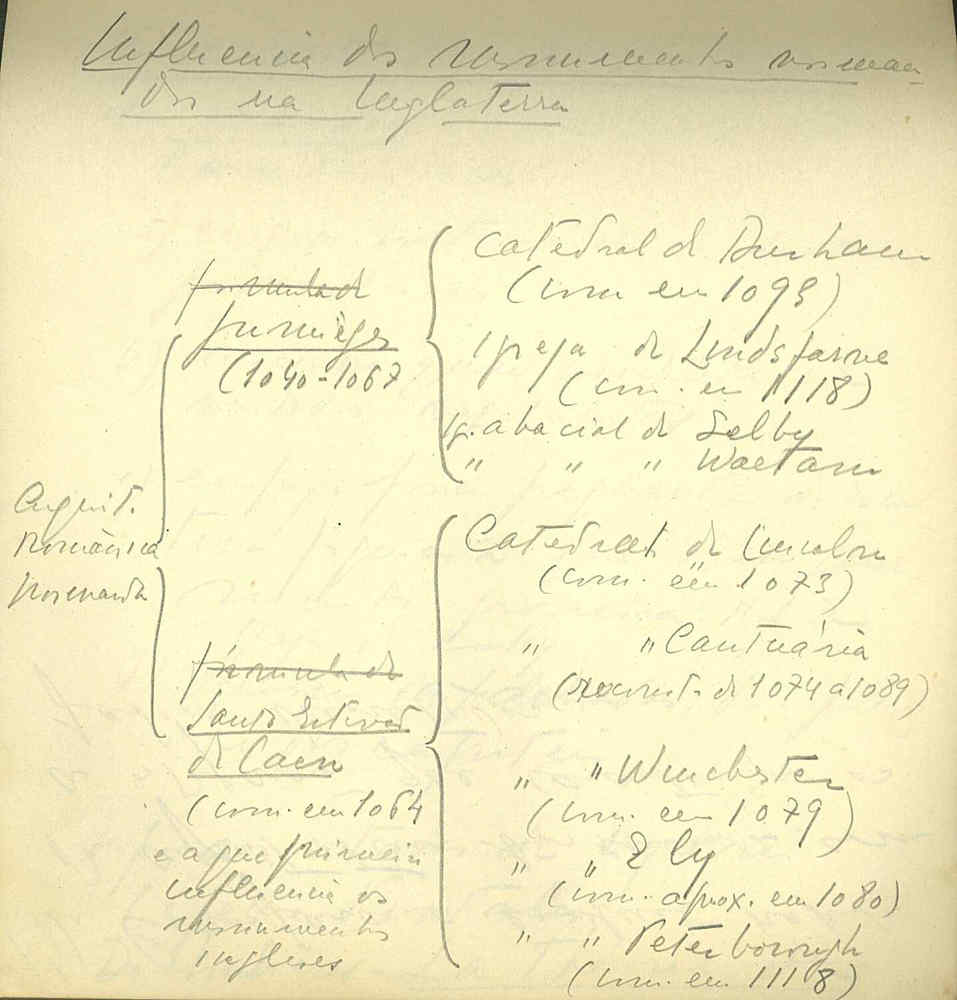 Influencia dos monumentos norman-
dos na Inglaterra
Arquit.
Românica
Normanda
fórmula de
Jumièges
(1040-1067
Catedral de Durham
(com. em 1093)
Igreja de Lindsfarne
(com. em 1118)
Ig. abacial de Selby
" " " Waltam
fórmula de
Santo Estevão
de Caen
(com. em 1064
e a que primeiro
influencia os
monumentos
ingleses
Catedral de Lincoln
(com. em 1073)
" " Cantuária
(reconst. de 1074 a 1089)
" " Winchester
(com. em 1079)
" " Ely
(com. aprox. em 1080)
" " Peterborough
(com. em 1118)